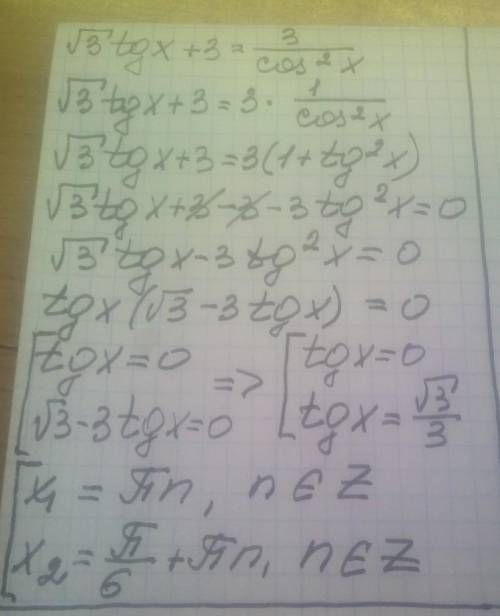 √3 tgx + 3 = 3/cos²x
√3 tgx + 3 = 3 · 1/cos²x
√3 tgx + 3 = 3(1 + tg²x)
√3 tgx + 3 - 3 - 3tg²x = 0
√3 tgx - 3tg²x = 0
tgx(√3 - 3tgx) = 0
[tgx = 0 => [tgx = 0
√3 - 3tgx = 0 tgx = √3/3
[x₁ = πn, n ∈ Z
x₂ = π/6 + πn, n ∈ Z